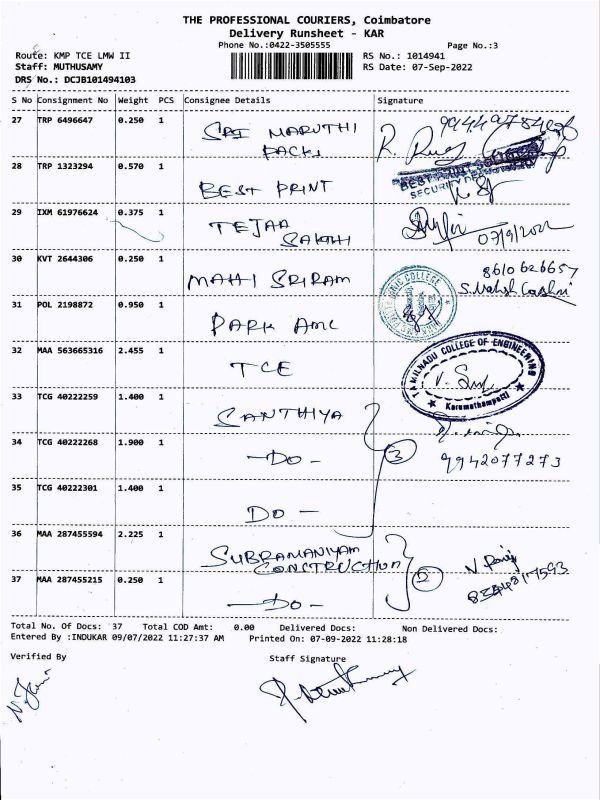 THE PROFESSIONAL COURIERS, Coimbatore
Delivery Runsheet - KAR
Phone No.:0422-3505555 Page No.:3
Route: KMP TCE LMW II RS No.: 1014941
Staff: MUTHUSAMY RS Date: 07-Sep-2022
DRS No.: DCJB101494103
S No Consignment No Weight PCS Consignee Details Signature
27 TRP 6496647 0.250 1 SRI MARUTHI
PACKS
28 TRP 1323294 0.570 1 BEST PRINT
29 IXM 61976624 0.375 1 TEJAA
SAKTHI 07/9/2022
30 KVT 2644306 0.250 1 MAHI SRIRAM 8610626657
31 POL 2198872 0.950 1 PARK AMC
32 MAA 563665316 2.455 1 TCE TAMILNADU COLLEGE OF ENGINEERING
Karumathampatti
33 TCG 40222259 1.400 1 SANTHIYA
34 TCG 40222268 1.900 1 -DO- 3 9942077273
35 TCG 40222301 1.400 1 DO-
36 MAA 287455594 2.225 1 SUBRAMANIYAM
CONSTRUCTION 2
37 MAA 287455215 0.250 1 -DO-
Total No. Of Docs: 37 Total COD Amt: 0.00 Delivered Docs: Non Delivered Docs:
Entered By :INDUKAR 09/07/2022 11:27:37 AM Printed On: 07-09-2022 11:28:18
Verified By Staff Signature